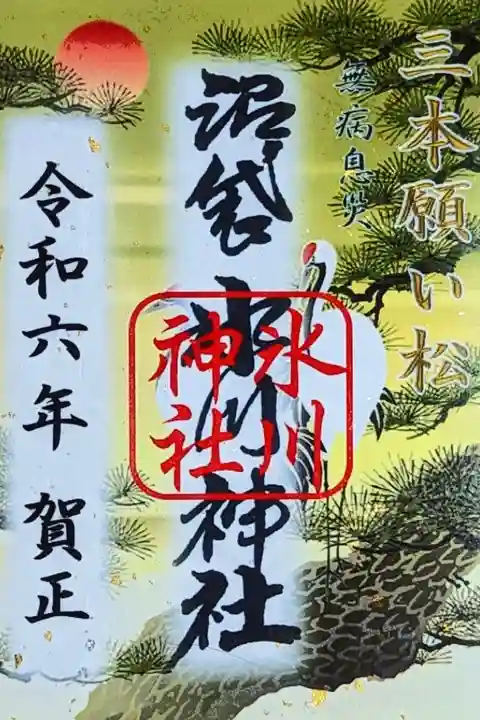 三本願い松
無病息災
沼袋氷川神社
氷川
神社
令和六年 賀正